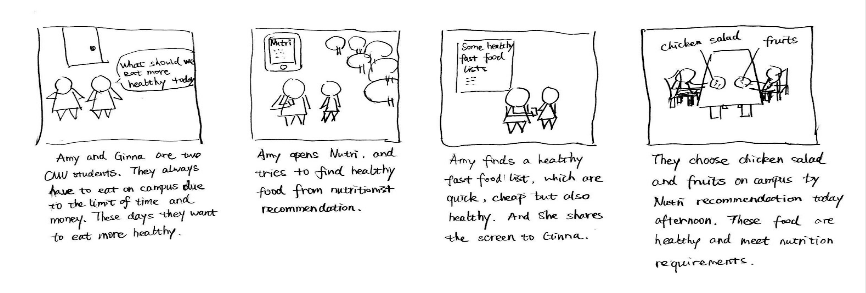 What should we
eat more
healthy today
Amy and Ginna are two
CMU students. They always
have to eat on campus due
to the limit of time and
money. These days they want
to eat more healthy.
Nutri
Amy opens Nutri, and
tries to find healthy
food from nutritionist
recommendation.
Some healthy
fast food
lists
Amy finds a healthy
fast food list, which are
quick, cheap but also
healthy. And She shares
the screen to Ginna.
chicken salad
fruits
They choose chicken salad
and fruits on campus by
Nutri recommendation today
afternoon. These food are
healthy and meet nutrition
requirements.